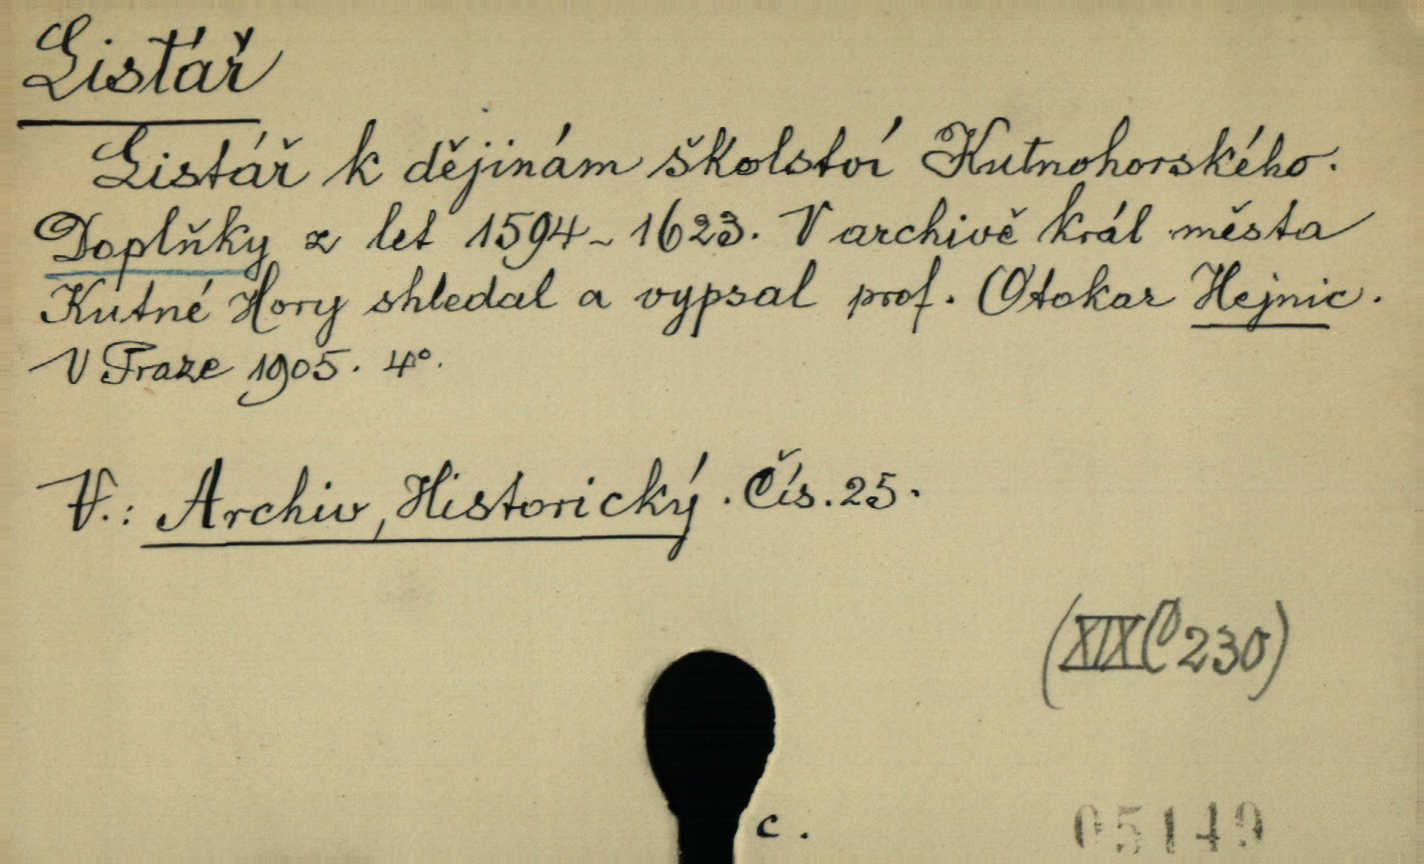 Listář
Listář k dějinám školství Kutnohorského.
Doplňky z let 1594-1623. V archivě král města
Kutné Hory shledal a vypsal prof. Otokar Hejnic.
V Praze 1905. 4°.
V.: Archiv, Historický. Čís. 25.
(XIX C 230)
c.
05149